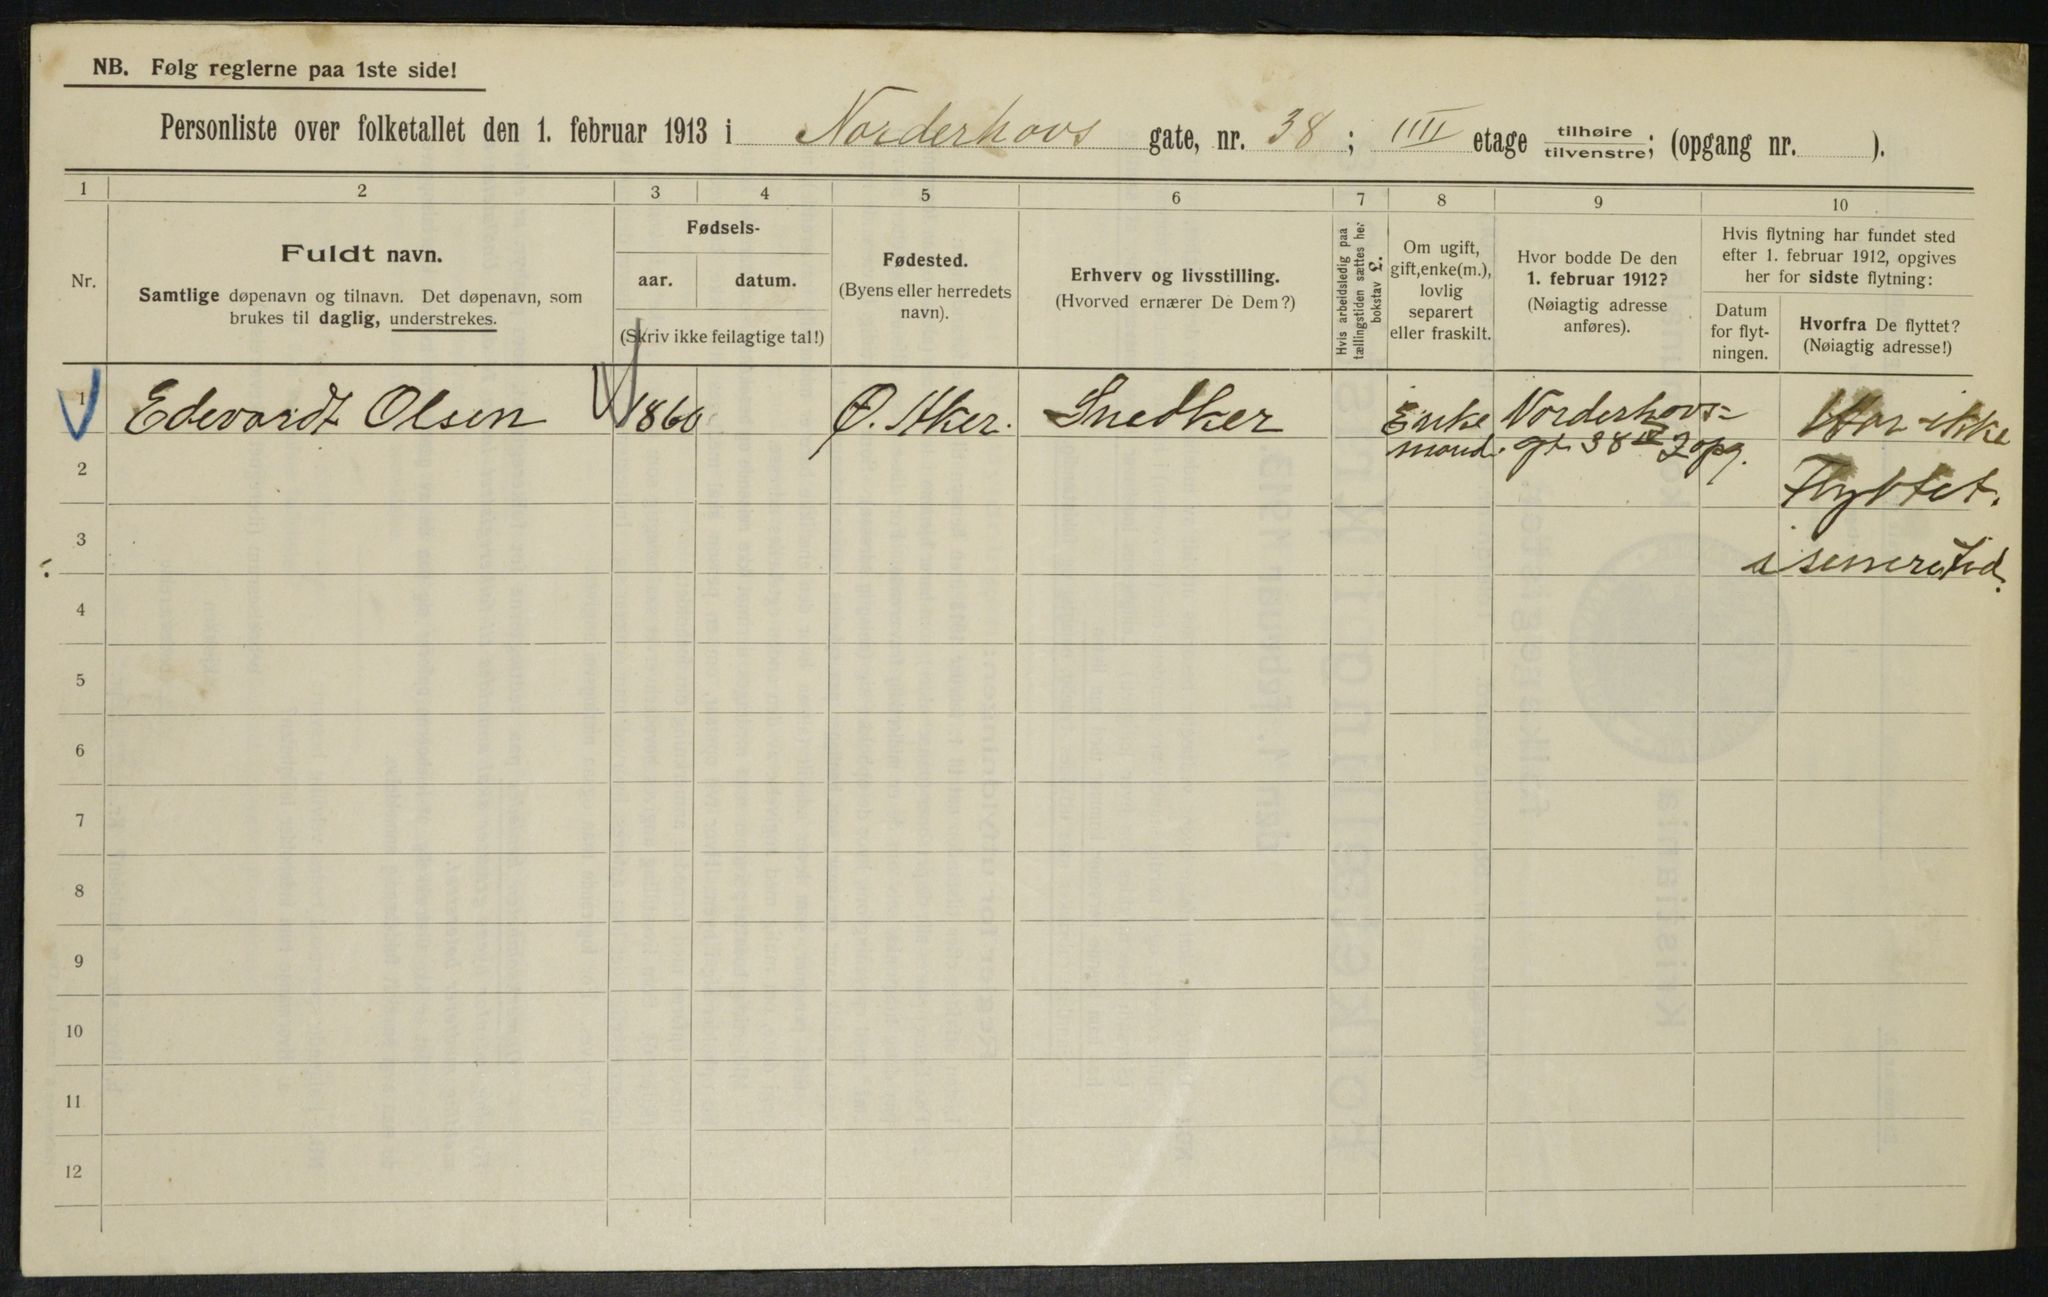 NB. Følg reglerne paa 1ste side!
Personliste over folketallet den 1. februar 1913 i Norderhovs gate, nr. 38; IIII etage tilhøire/tilvenstre; (opgang nr. ).
1 2 3 4 5 6 7 8 9 10
Nr.
Fuldt navn.
Samtlige døpenavn og tilnavn. Det døpenavn, som
brukes til daglig, understrekes.
Fødsels-
aar. datum.
(Skriv ikke feilagtige tal!)
Fødested.
(Byens eller herredets
navn).
Erhverv og livsstilling.
(Hvorved ernærer De Dem?)
Hvis arbeidsledig paa
tællingstiden sættes her
bokstav l.
Om ugift,
gift, enke(m.),
lovlig
separert
eller fraskilt.
Hvor bodde De den
1. februar 1912?
(Nøiagtig adresse
anføres).
Hvis flytning har fundet sted
efter 1. februar 1912, opgives
her for sidste flytning:
Datum
for flyt-
ningen.
Hvorfra De flyttet?
(Nøiagtig adresse!)
1 Edevardt Olsen 1860 Ø. Aker. Snedker Enke Norderhovs= Har ikke
mand. gt 38 IV 2 opg.
2 Flyttet.
3 i senere Tid.
4
5
6
7
8
9
10
11
12